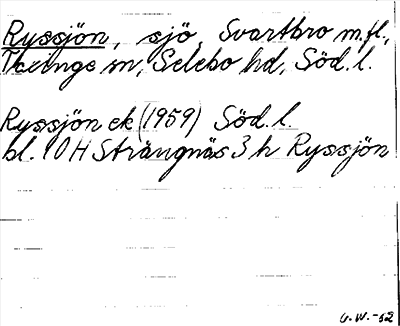 Ryssjön, sjö, Svartbro m.fl.,
Taxinge sn, Selebo hd, Söd. l.
Ryssjön ek (1959) Söd. l.
bl. 10H Strängnäs 3 h Ryssjön
G.W.-62